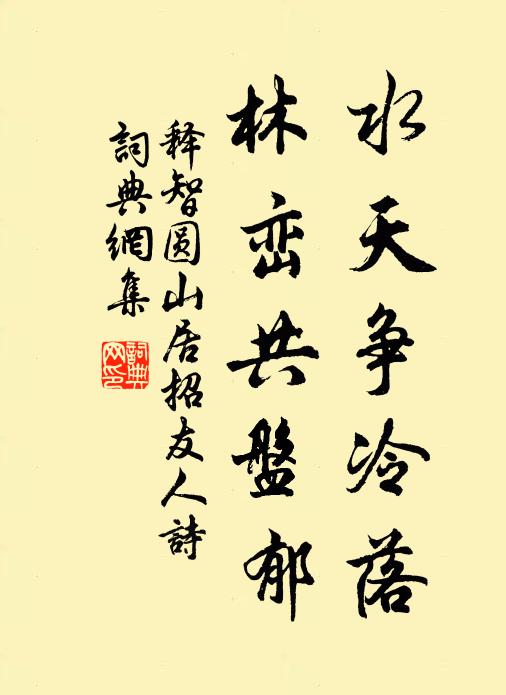 水天争冷落
林峦共盤郁
释智圆山居招友人詩
詞典網集
詞典网印